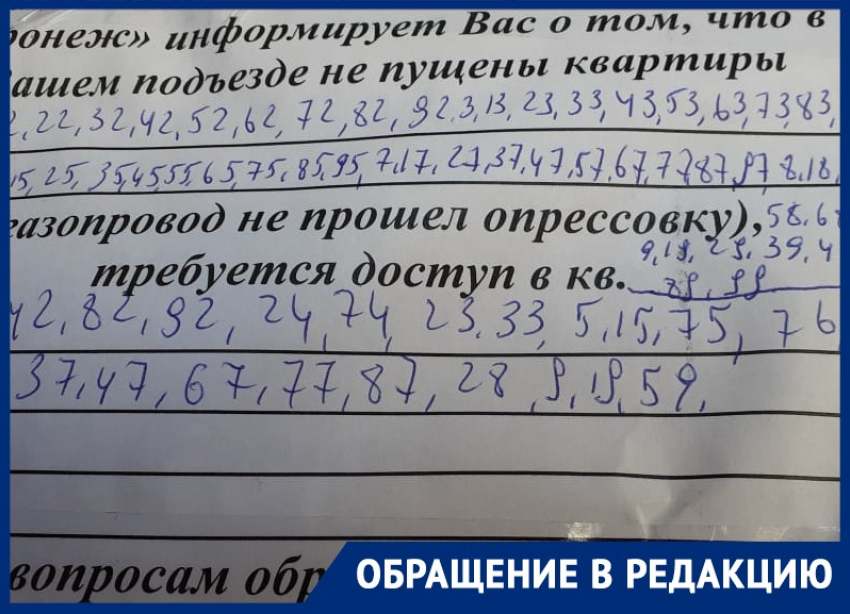 ронеж» информирует Вас о том, что в
Вашем подъезде не пущены квартиры
2, 22, 32, 42, 52, 62, 72, 82, 92, 3, 13, 23, 33, 43, 53, 63, 73, 83,
15, 25, 35, 45, 55, 65, 75, 85, 95, 7, 17, 27, 37, 47, 57, 67, 77, 87, 97, 8, 18,
газопровод не прошел опрессовку), 58, 68
9, 19, 29, 39, 4
требуется доступ в кв. 89, 99
42, 82, 92, 24, 74, 23, 33, 5, 15, 75, 76
37, 47, 67, 77, 87, 28, 9, 19, 59,
вопросам обр
ОБРАЩЕНИЕ В РЕДАКЦИЮ